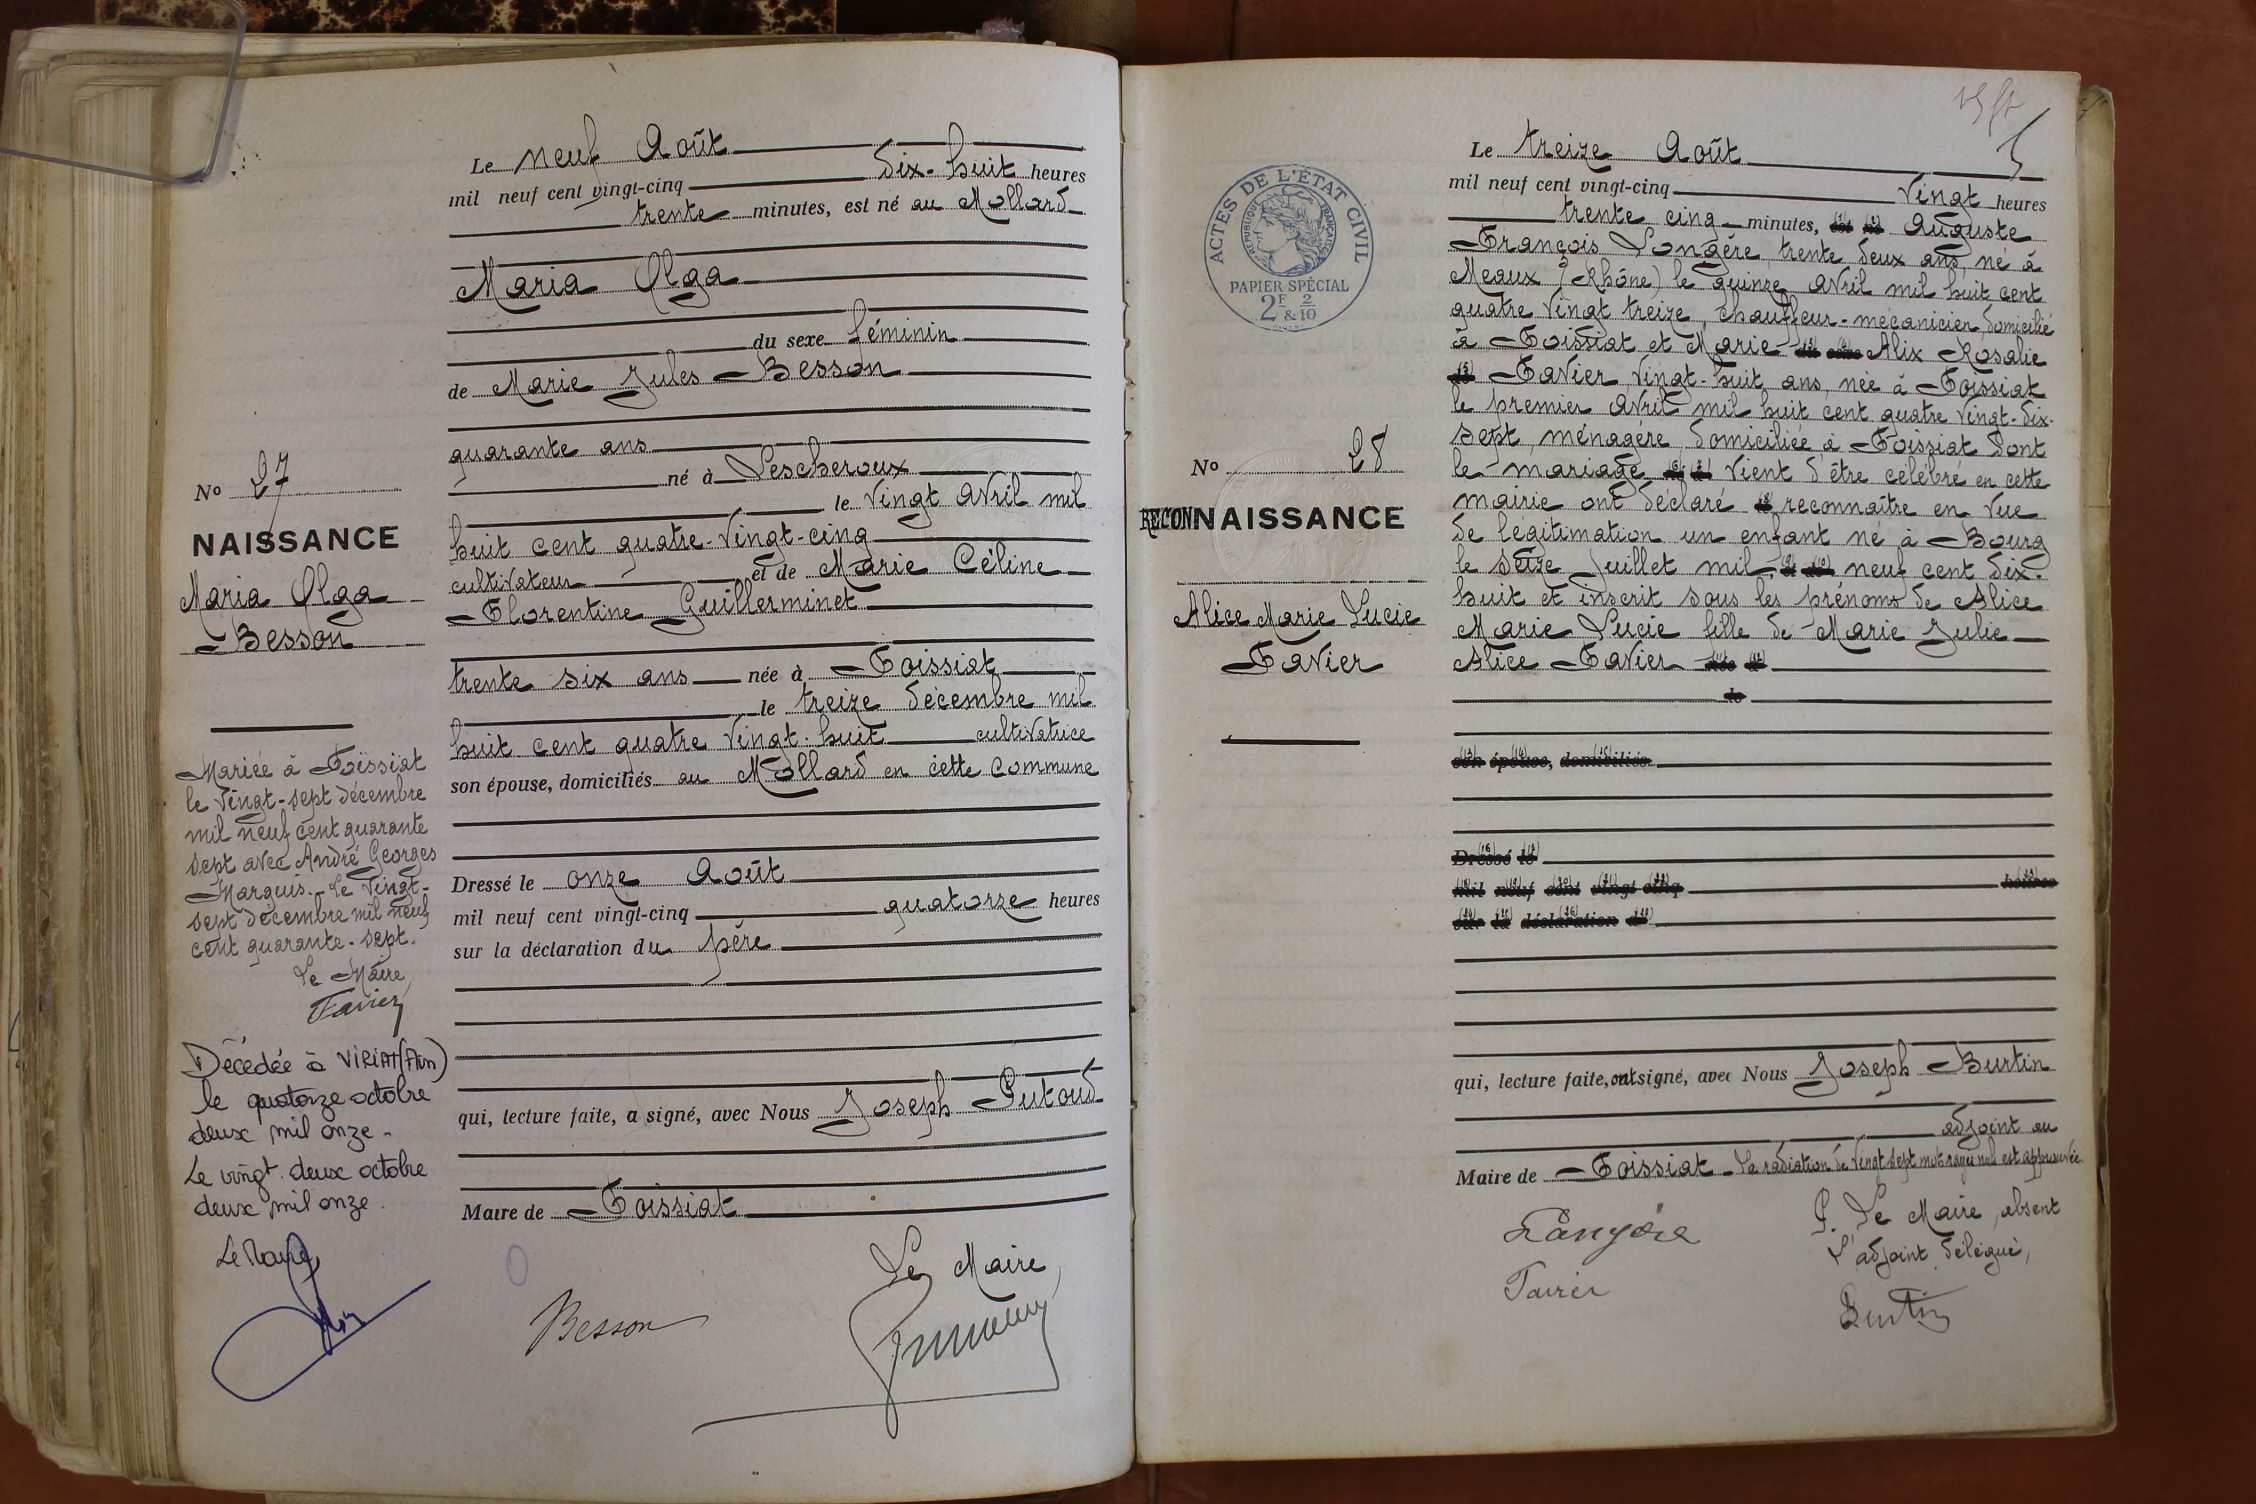 Le neuf Août
mil neuf cent vingt-cinq dix-huit heures
trente minutes, est né au Mollard
Maria Olga
du sexe féminin
de Marie Jules Besson
quarante ans
né à Lescheroux
le vingt avril mil
huit cent quatre-vingt-cinq
cultivateur et de Marie Céline
Florentine Guillerminet
trente six ans née à Foissiat
le treize décembre mil
huit cent quatre vingt-huit cultivatrice
son épouse, domiciliés au Mollard en cette commune
Dressé le onze Août
mil neuf cent vingt-cinq quatorze heures
sur la déclaration du père
qui, lecture faite, a signé, avec Nous Joseph Putoud
Maire de Foissiat
Le Maire,
Besson
No 27
NAISSANCE
Maria Olga
Besson
Mariée à Foissiat
le vingt-sept décembre
mil neuf cent quarante
sept avec André Georges
Marguis. Le vingt-
sept décembre mil neuf
cent quarante-sept.
Le Maire,
Favier
Décédée à VIRIAT (Ain)
le quatorze octobre
deux mil onze.
Le vingt deux octobre
deux mil onze.
Le Maire,
Le treize Août
mil neuf cent vingt-cinq vingt heures
trente cinq minutes, est né Auguste
François Longère trente deux ans, né à
Meaux (Rhône) le quinze avril mil huit cent
quatre vingt treize, chauffeur-mécanicien, domicilié
à Foissiat et Marie Alix Rosalie
Favier vingt-huit ans, née à Foissiat
le premier avril mil huit cent quatre vingt-dix-
sept ménagère domiciliée à Foissiat dont
le mariage vient d'être célébré en cette
mairie ont déclaré reconnaître en vue
de légitimation un enfant né à Bourg
le seize Juillet mil neuf cent dix-
huit et inscrit sous les prénoms de Alice
Marie Lucie fille de Marie Julie
Alice Favier née à
le
son épouse, domiciliés
Dressé le
mil neuf cent vingt cinq heures
sur la déclaration de
qui, lecture faite, ont signé, avec Nous Joseph Burtin
adjoint au
Maire de Foissiat - La radiation de vingt sept mots rayés nuls est approuvée
P. Le Maire, absent
L'adjoint délégué,
Longère
Favier
Burtin
ACTES DE L'ÉTAT CIVIL
RÉPUBLIQUE FRANÇAISE
PAPIER SPÉCIAL
2F & 2/10
No 28
RECONNAISSANCE
Alice Marie Lucie
Favier